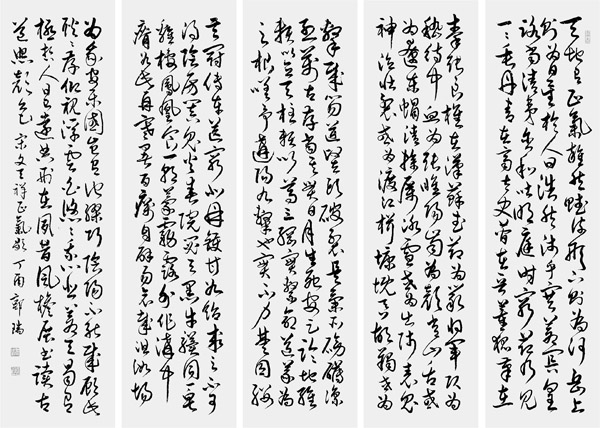 天地有正氣雜然賦流形下則為河嶽上
則為日星於人曰浩然沛乎塞蒼冥皇
路當清夷含和吐明庭時窮節乃見
一一垂丹青在齊太史簡在晉董狐筆在
秦張良椎在漢蘇武節為嚴將軍頭為
嵇侍中血為張睢陽齒為顏常山舌或
為遼東帽清操厲冰雪或為出師表鬼
神泣壯烈或為渡江楫慷慨吞胡羯或為
擊賊笏逆豎頭破裂是氣所磅礴凜
烈萬古存當其貫日月生死安足論地維
賴以立天柱賴以尊三綱實繫命道義為
之根嗟予遘陽九隸也實不力楚囚纓
其冠傳車送窮北鼎鑊甘如飴求之不可
得陰房闃鬼火春院閟天黑牛驥同一皂
雞棲鳳凰食一朝蒙霧露分作溝中
瘠如此再寒暑百癘自辟易哀哉沮洳場
為我安樂國豈有他繆巧陰陽不能賊顧此
耿耿存仰視浮雲白悠悠我心悲蒼天曷有
極哲人日已遠典刑在夙昔風檐展書讀古
道照顏色 宋文天祥正氣歌 丁酉 郭瑞